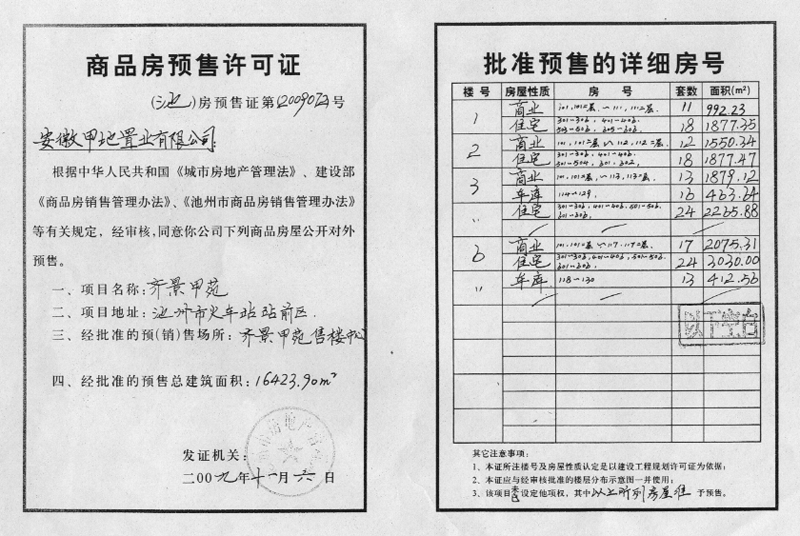 商品房预售许可证
(池)房预售证第2009072号
安徽甲地置业有限公司:
根据中华人民共和国《城市房地产管理法》、建设部
《商品房销售管理办法》、《池州市商品房销售管理办法》
等有关规定，经审核，同意你公司下列商品房屋公开对外
预售。
一、项目名称:齐景甲苑
二、项目地址:池州市火车站站前区.
三、经批准的预(销)售场所:齐景甲苑售楼中心
四、经批准的预售总建筑面积:16423.90m²
发证机关:
二00九年十一月六日
批准预售的详细房号
楼号 房屋性质 房号 套数 面积(m²)
1 商业 11 992.23
住宅 301-306, 401-406. 18 1877.35
2 商业 12 1550.34
住宅 301-306, 401-406. 18 1877.47
3 商业 13 1879.12
车库 114-129. 16 463.34
〃 住宅 301-306, 401-406, 501-506. 601-606. 24 2265.88
6 商业 17 2075.31
住宅 301-306, 401-406, 501-506. 601-606. 24 3030.00
〃 车库 118-130 13 412.56
以下空白
其它注意事项:
1、本证所注楼号及房屋性质认定是以建设工程规划许可证为依据;
2、本证应与经审核批准的楼层分布示意图一并使用;
3、该项目设定他项权,其中以上所列房屋准予预售。